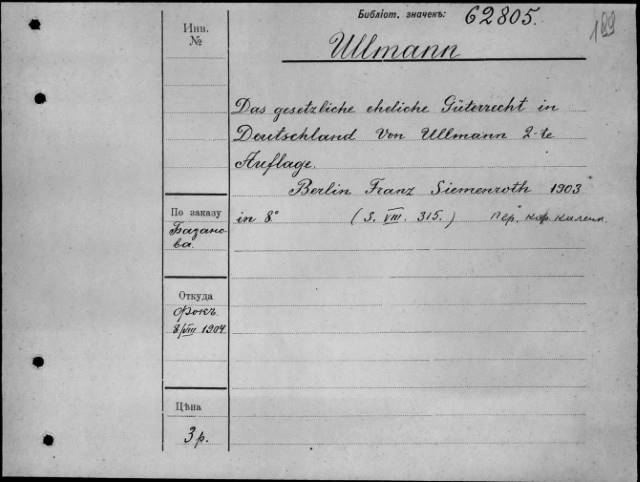 Библіот. значекъ: 62805.
189
Инв.
№
Ullmann
Das gesetzliche eheliche Güterrecht in
Deutschland von Ullmann 2-te
Auflage.
Berlin Franz Siemenroth 1903
in 8° (S. VIII. 315.) пер. кор.
По заказу
Базано-
ва.
Откуда
Фокъ
8/VIII 1904.
Цѣна
3 р.